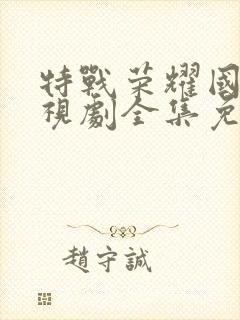 特戰荣耀國
視劇全集免
趙守誠